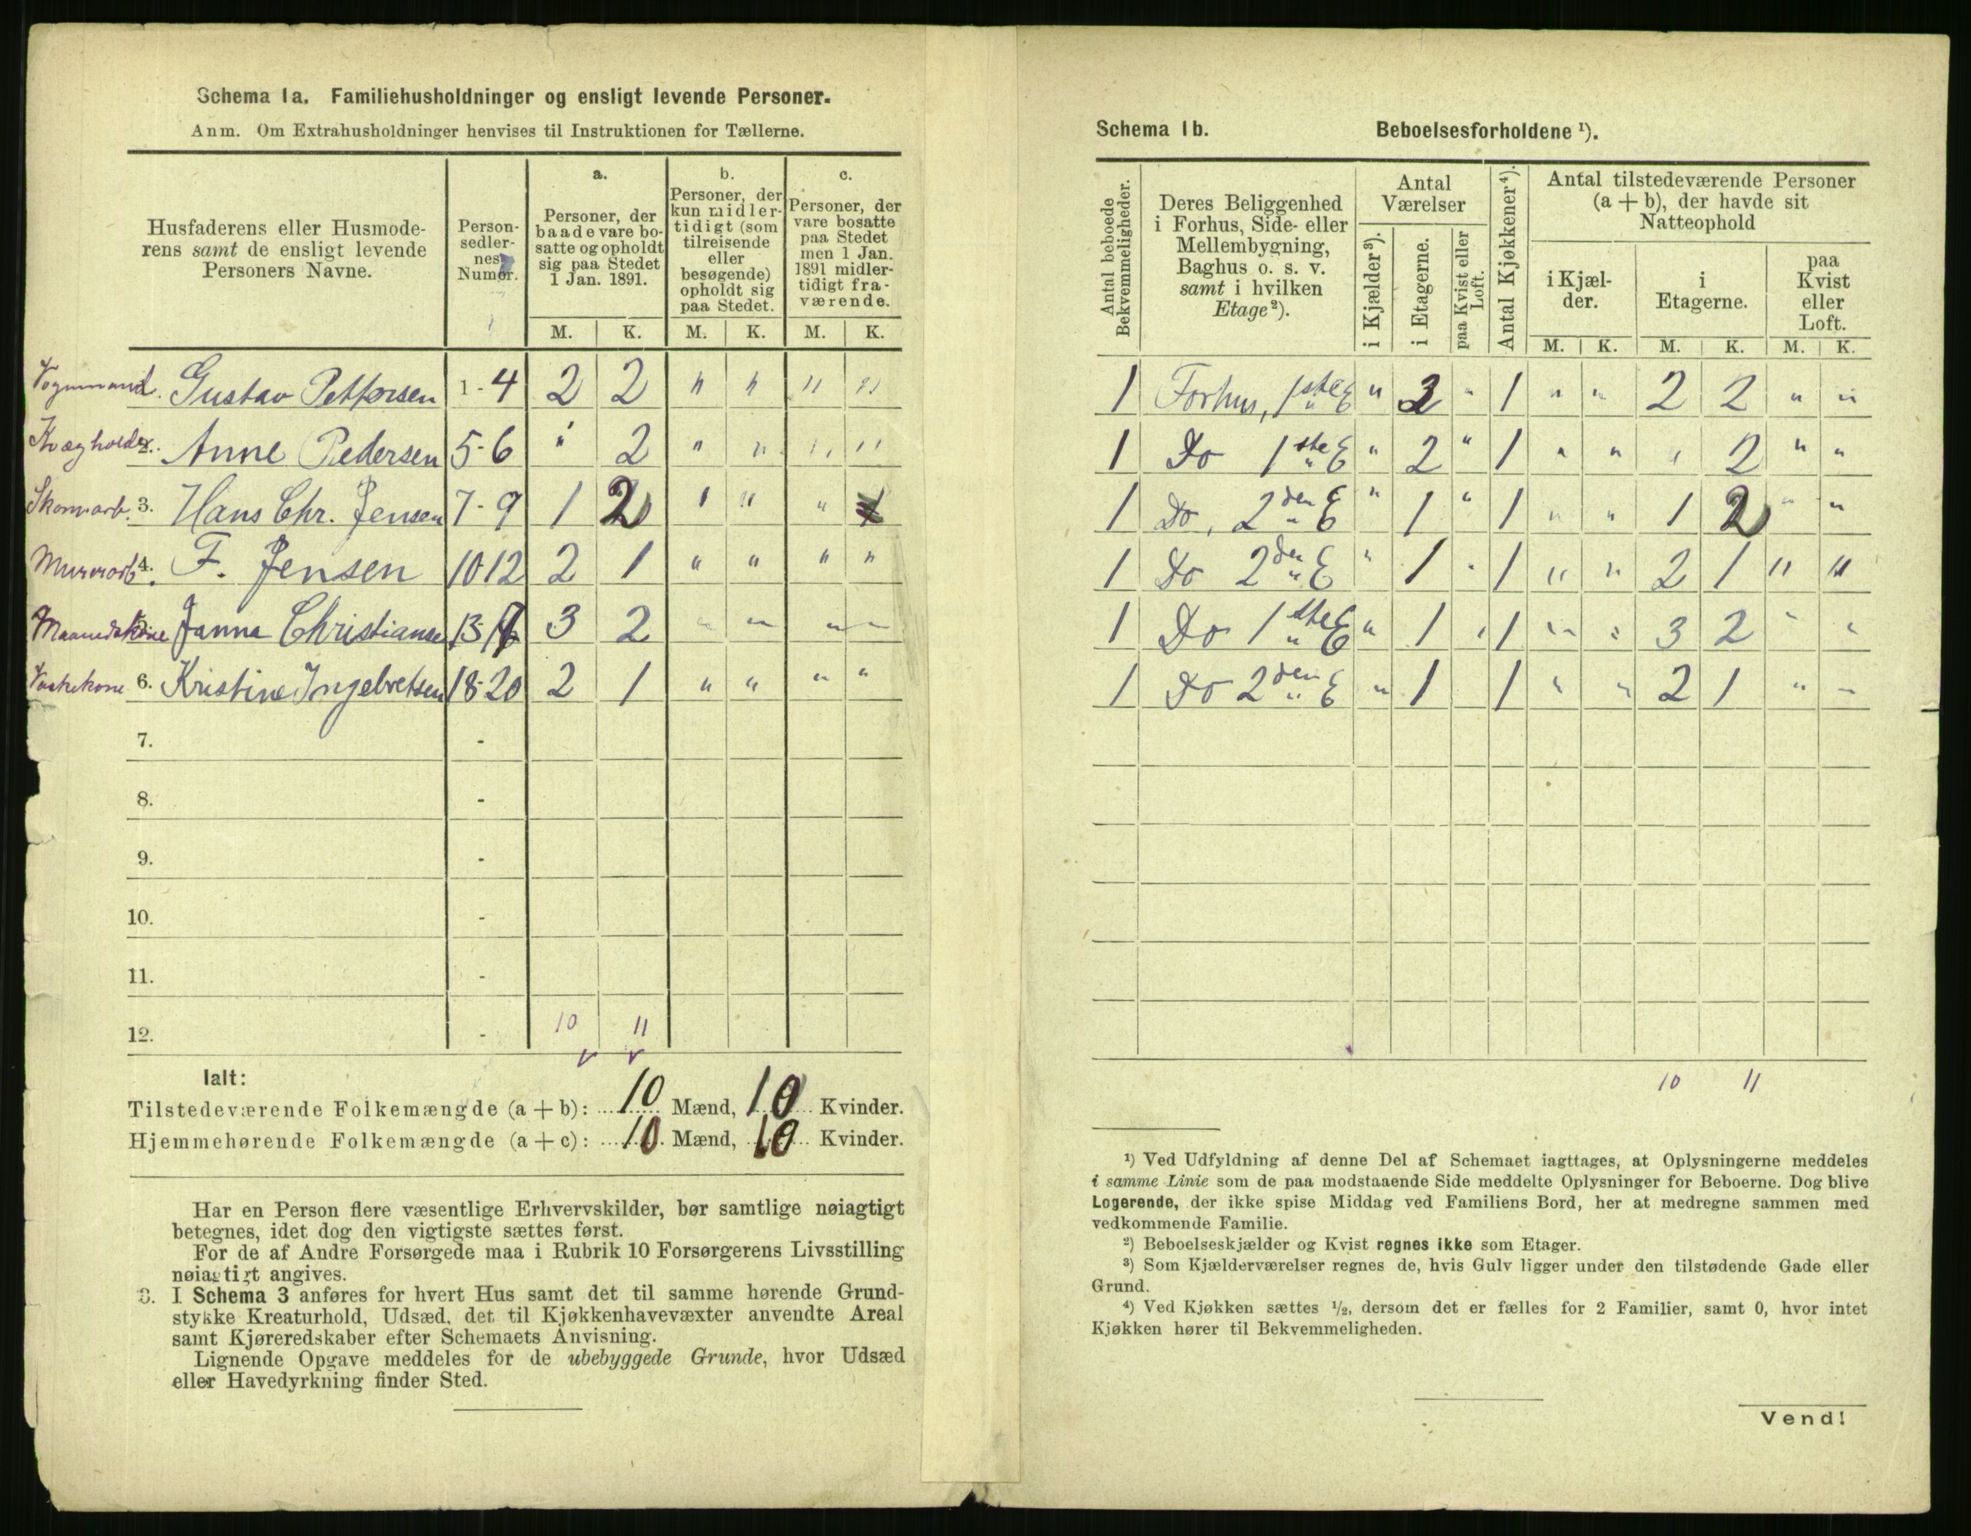 Schema 1a. Familiehusholdninger og ensligt levende Personer.
Anm. Om Extrahusholdninger henvises til Instruktionen for Tællerne.
Husfaderens eller Husmode-
rens samt de ensligt levende
Personers Navne.
Person-
sedler-
nes
Numer.
a.
Personer, der
baade vare bo-
satte og opholdt
sig paa Stedet
1 Jan. 1891.
b.
Personer, der
kun midler-
tidigt (som
tilreisende
eller
besøgende)
opholdt sig
paa Stedet.
c.
Personer, der
vare bosatte
paa Stedet
men 1 Jan.
1891 midler-
tidigt fra-
værende.
M. K. M. K. M. K.
Vognmand. Gustav Pettersen 1-4 2 2 " " " "
Kvægholder 2. Anne Pedersen 5-6 " 2 " " " "
3. Hans Chr. Jensen 7-9 1 2 " " "
Murerarb. 4. F. Jensen 10 12 2 1 " " " "
Maanedskone Janna Christianse 13-17 3 2 " " " "
Vaskekone 6. Kristine Ingebretsen 18-20 2 1 " " " "
7. -
8. -
9. -
10. -
11. -
12. - 10 11
Ialt:
Tilstedeværende Folkemængde (a + b): 10 Mænd, 10 Kvinder.
Hjemmehørende Folkemængde (a + c): 10 Mænd, 10 Kvinder.
Har en Person flere væsentlige Erhvervskilder, bør samtlige nøiagtigt
betegnes, idet dog den vigtigste sættes først.
For de af Andre Forsørgede maa i Rubrik 10 Forsørgerens Livsstilling
nøiagtigt angives.
3. I Schema 3 anføres for hvert Hus samt det til samme hørende Grund-
stykke Kreaturhold, Udsæd, det til Kjøkkenhavevæxter anvendte Areal
samt Kjøreredskaber efter Schemaets Anvisning.
Lignende Opgave meddeles for de ubebyggede Grunde, hvor Udsæd
eller Havedyrkning finder Sted.
Schema 1b. Beboelsesforholdene ¹).
Antal beboede
Bekvemmeligheder.
Deres Beliggenhed
i Forhus, Side- eller
Mellembygning,
Baghus o. s. v.
samt i hvilken
Etage ²).
Antal
Værelser
i Kjælder ³).
i Etagerne.
paa Kvist eller
Loft.
Antal Kjøkkener ⁴).
Antal tilstedeværende Personer
(a + b), der havde sit
Natteophold
i Kjæl-
der.
i
Etagerne.
paa
Kvist
eller
Loft.
M. K. M. K. M. K.
1 Forhus, 1ste E " " 1 " " 2 2 " "
1 Do 1ste E " 2 " 1 " " " 2 " "
1 Do, 2den E " 1 " 1 " " 1 2 " "
1 Do 2den E " 1 " 1 " " 2 1 " "
1 Do 1ste E " 1 " 1 " " 3 2 " "
1 Do 2den E " 1 1 " " 2 1 " "
10 11
¹) Ved Udfyldning af denne Del af Schemaet iagttages, at Oplysningerne meddeles
i samme Linie som de paa modstaaende Side meddelte Oplysninger for Beboerne. Dog blive
Logerende, der ikke spise Middag ved Familiens Bord, her at medregne sammen med
vedkommende Familie.
²) Beboelseskjælder og Kvist regnes ikke som Etager.
³) Som Kjælderværelser regnes de, hvis Gulv ligger under den tilstødende Gade eller
Grund.
⁴) Ved Kjøkken sættes ½, dersom det er fælles for 2 Familier, samt 0, hvor intet
Kjøkken hører til Bekvemmeligheden.
Vend!